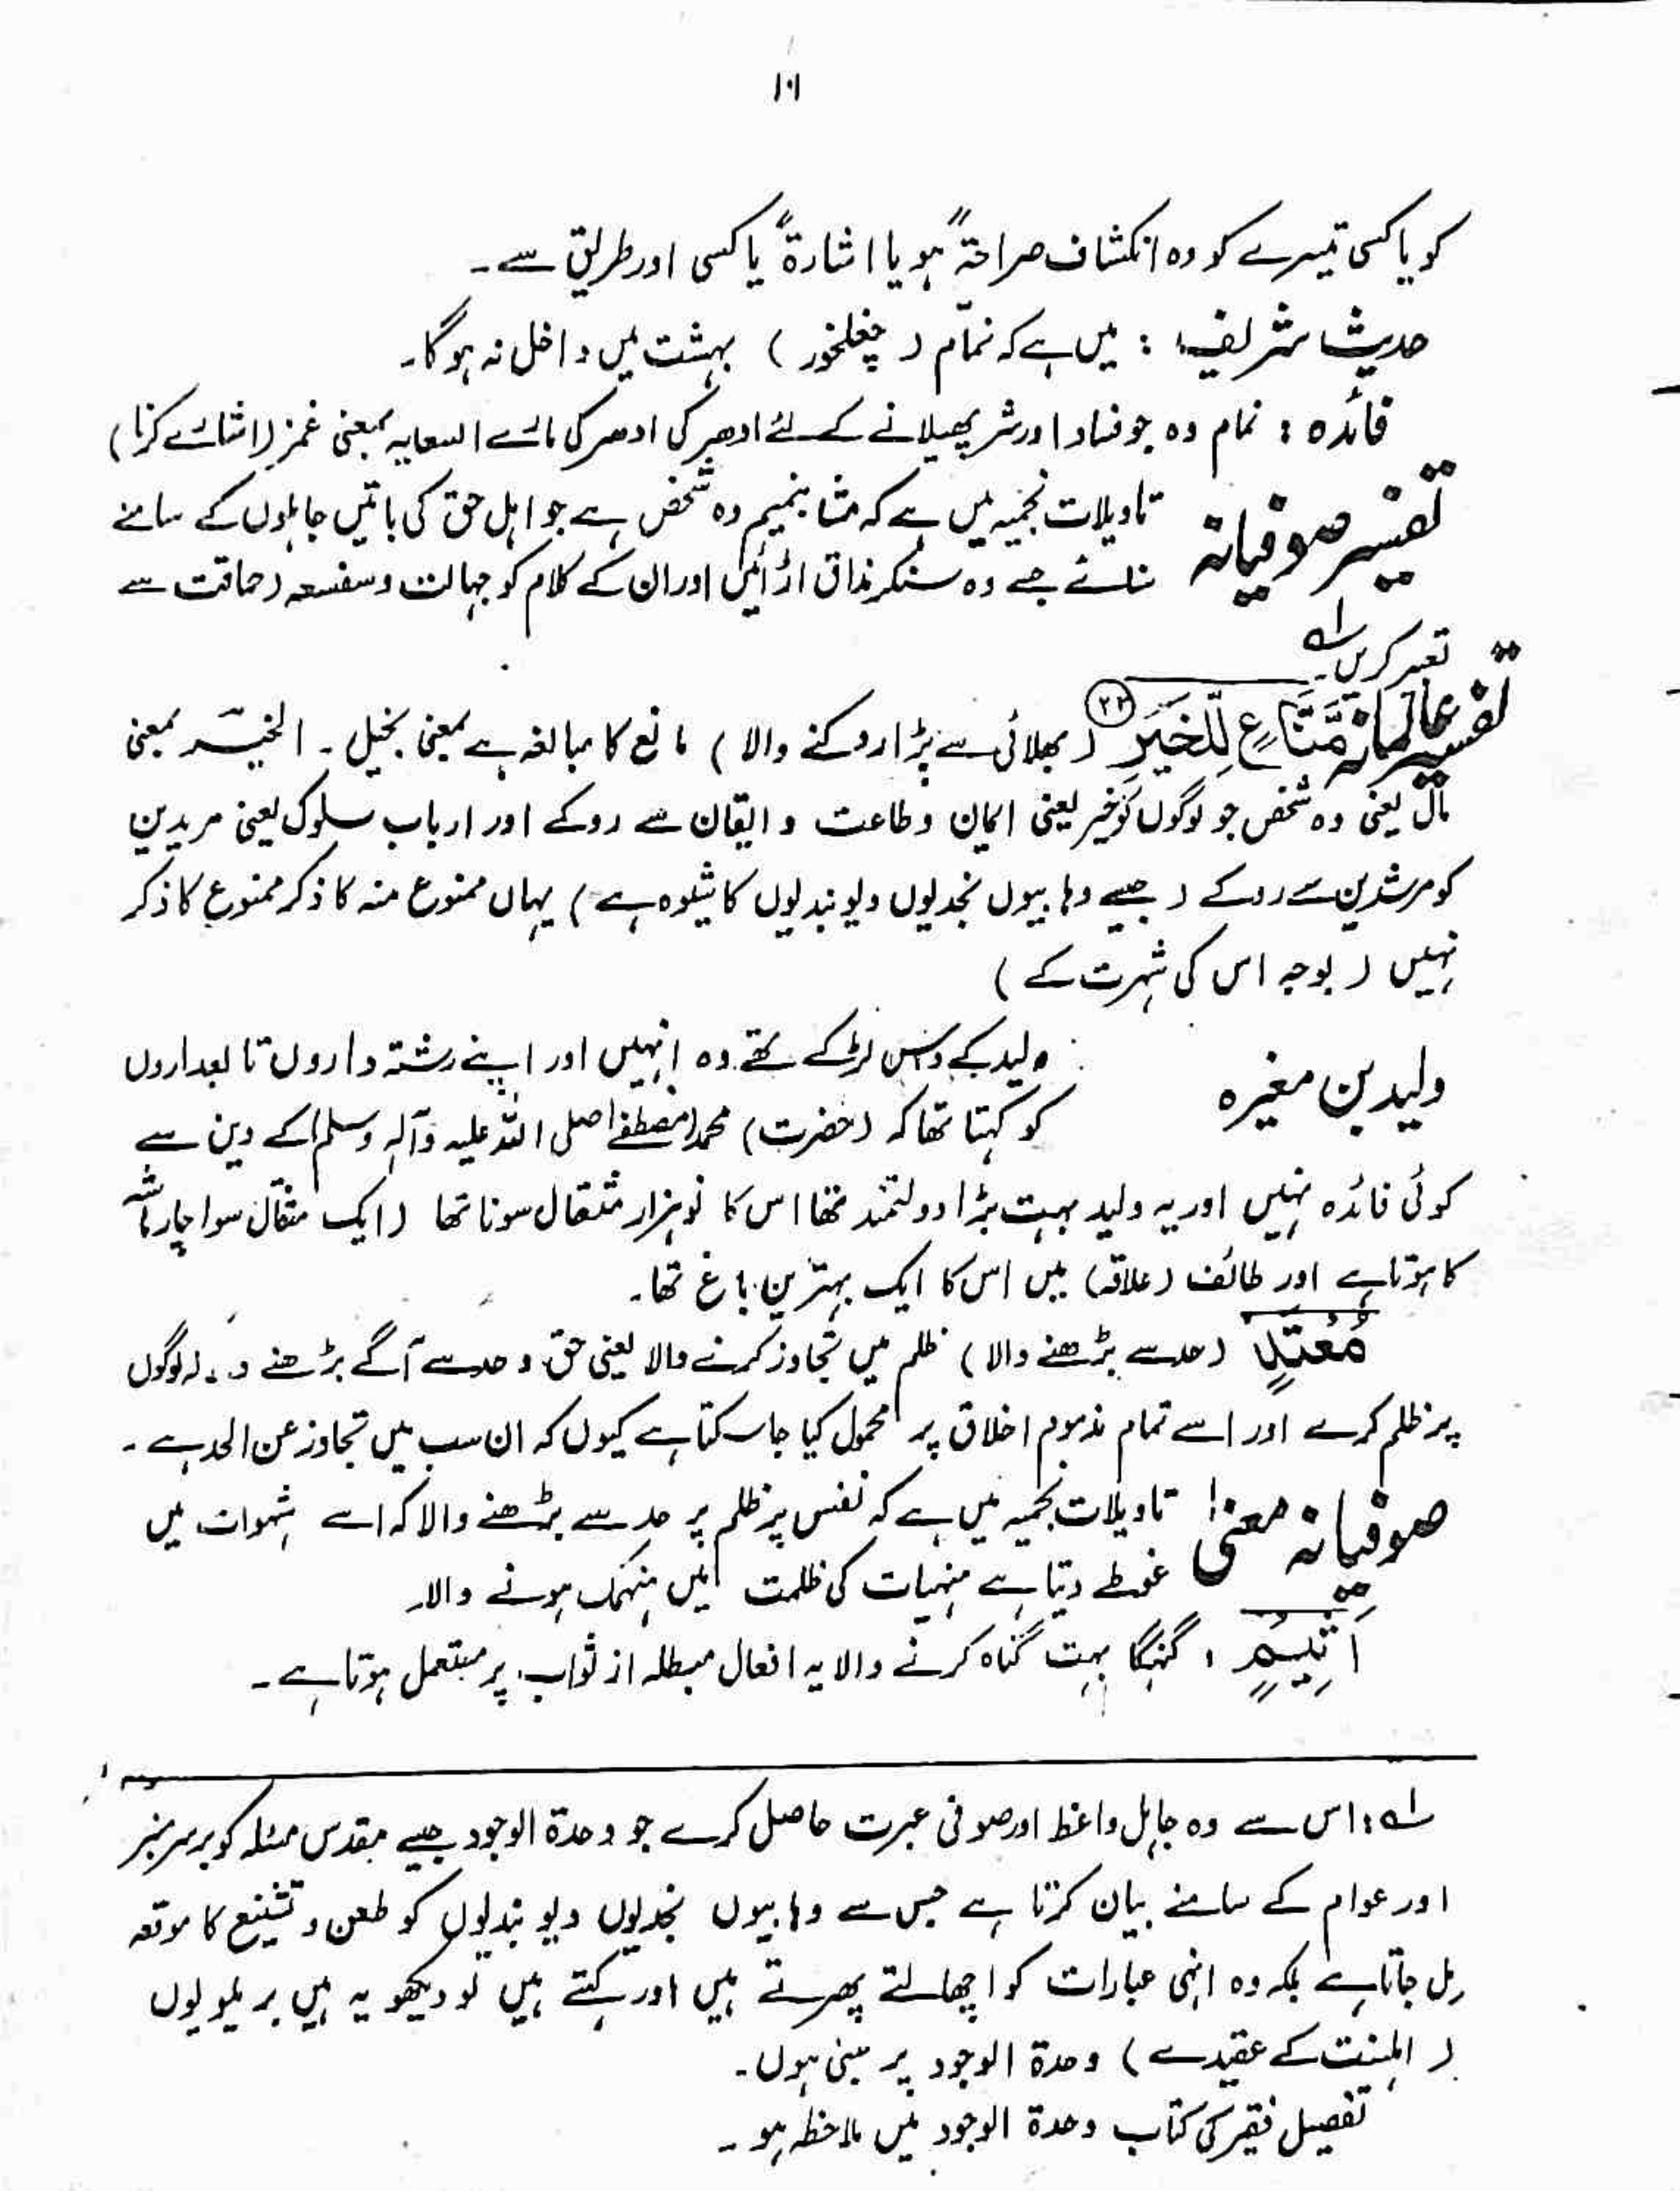 ۱۰۱
کو یا کسی تیسرے کو وہ انکشاف صراحۃً ہو یا اشارۃً یا کسی اور طریق سے ۔
حدیث شریف : میں ہے کہ نمّام ( چغلخور ) بہشت میں داخل نہ ہوگا۔
فائدہ : نمام وہ جو فساد اور شر پھیلانے کے لئے ادھر کی ادھر کی مارے السعایہ بمعنی غمز (اشارے کرنا)
تفسیر صوفیانہ تاویلات نجمیہ میں ہے کہ مشا بنمیم وہ شخص ہے جو اہل حق کی باتیں جاہلوں کے سامنے
سنائے جسے وہ سنکر مذاق اڑائیں اور ان کے کلام کو جہالت و سفسعہ (حماقت سے
تعبیر کریں لہ
تفسیر عالمانہ مَّنَّاعٍ لِّلْخَیْرِ ( بھلائی سے بڑا روکنے والا ) مانع کا مبالغہ ہے بمعنی بخیل ۔ الخیر بمعنی
مال یعنی وہ شخص جو لوگوں کو خیر یعنی ایمان و طاعت و ایقان سے روکے اور ارباب سلوک یعنی مریدین
کو مرشدین سے روکے ( جیسے وہابیوں نجدیوں دیوبندیوں کا شیوہ ہے ) یہاں ممنوع منہ کا ذکر ممنوع کا ذکر
نہیں ( بوجہ اس کی شہرت کے )
ولید بن مغیرہ ولید کے دس لڑکے تھے وہ انہیں اور اپنے رشتہ داروں تابعداروں
کو کہتا تھا کہ (حضرت) محمد مصطفےٰ صلی اللہ علیہ وآلہ وسلم کے دین سے
کوئی فائدہ نہیں اور یہ ولید بہت بڑا دولتمند تھا اس کا نو ہزار مثقال سونا تھا (ایک مثقال سوا چار ماشہ
کا ہوتا ہے اور طائف (علاقہ) میں اس کا ایک بہترین باغ تھا۔
مُعْتَدٍ (حد سے بڑھنے والا) ظلم میں تجاوز کرنے والا یعنی حق و حد سے آگے بڑھنے لوگوں
پر ظلم کرے اور اسے تمام مذموم اخلاق پر محمول کیا جا سکتا ہے کیوں کہ ان سب میں تجاوز عن الحد ہے ۔
صوفیانہ معنی تاویلات نجمیہ میں ہے کہ نفس پر ظلم پر حد سے بڑھنے والا کہ اسے شہوات میں
غوطے دیتا ہے منہیات کی ظلمت میں منہمک ہونے والا۔
اَثِیْمٍ ، گنہگا بہت گناہ کرنے والا یہ افعال مبطلہ از ثواب پر مستعمل ہوتا ہے ۔
لہ : اس سے وہ جاہل واعظ اور صوفی عبرت حاصل کرے جو وحدۃ الوجود جیسے مقدس مسئلہ کو برسر منبر
اور عوام کے سامنے بیان کرتا ہے جس سے وہابیوں نجدیوں دیوبندیوں کو طعن و تشنیع کا موقعہ
مل جاتا ہے بلکہ وہ انہی عبارات کو اچھالتے پھرتے ہیں اور کہتے ہیں لو دیکھو یہ ہیں بریلویوں
( اہلسنت کے عقیدے ) وحدۃ الوجود پر مبنی ہوں ۔
تفصیل فقیر کی کتاب وحدۃ الوجود میں ملاحظہ ہو ۔